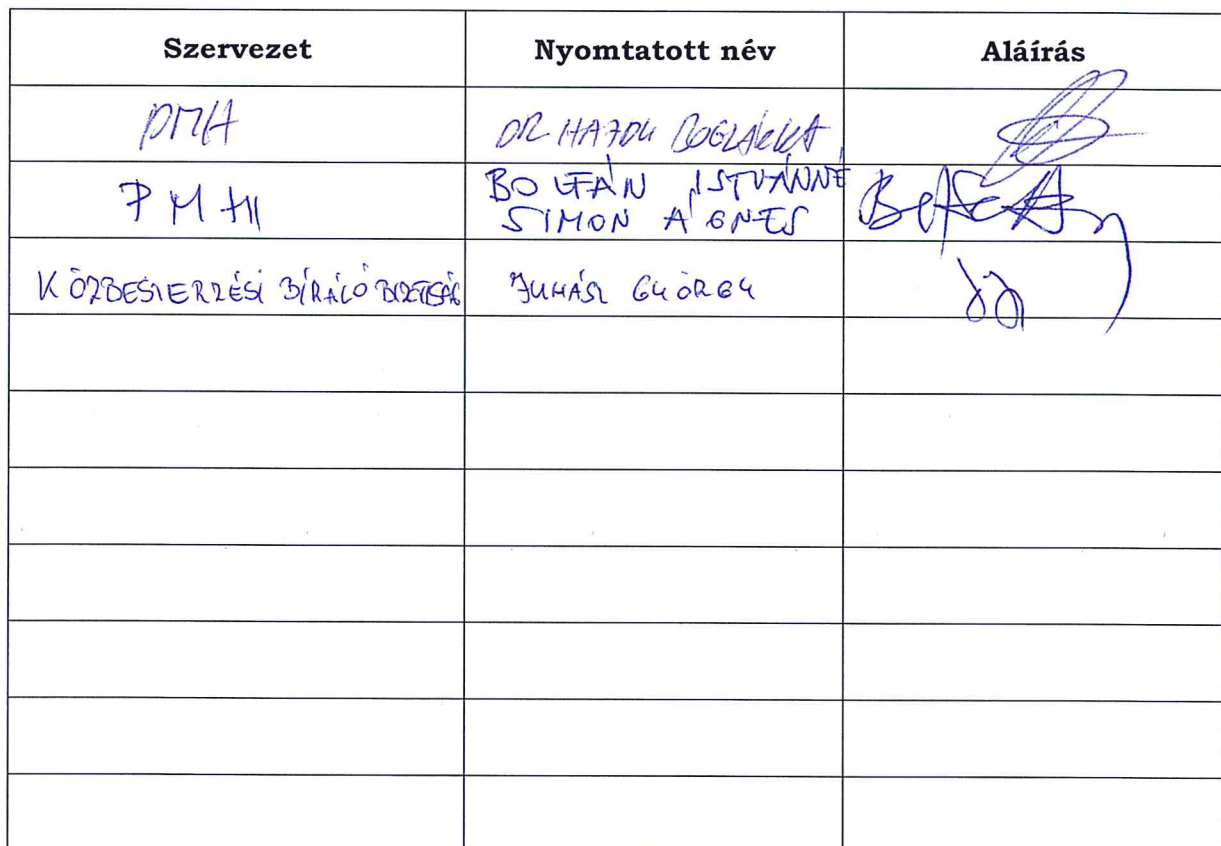 Szervezet Nyomtatott név Aláírás
PMH DR HAJDU BOGLÁRKA
PMH BOLFÁN ISTVÁNNÉ
SIMON ÁGNES
KÖZBESZERZÉSI BÍRÁLÓ BIZOTTSÁG JUHÁSZ GYÖRGY